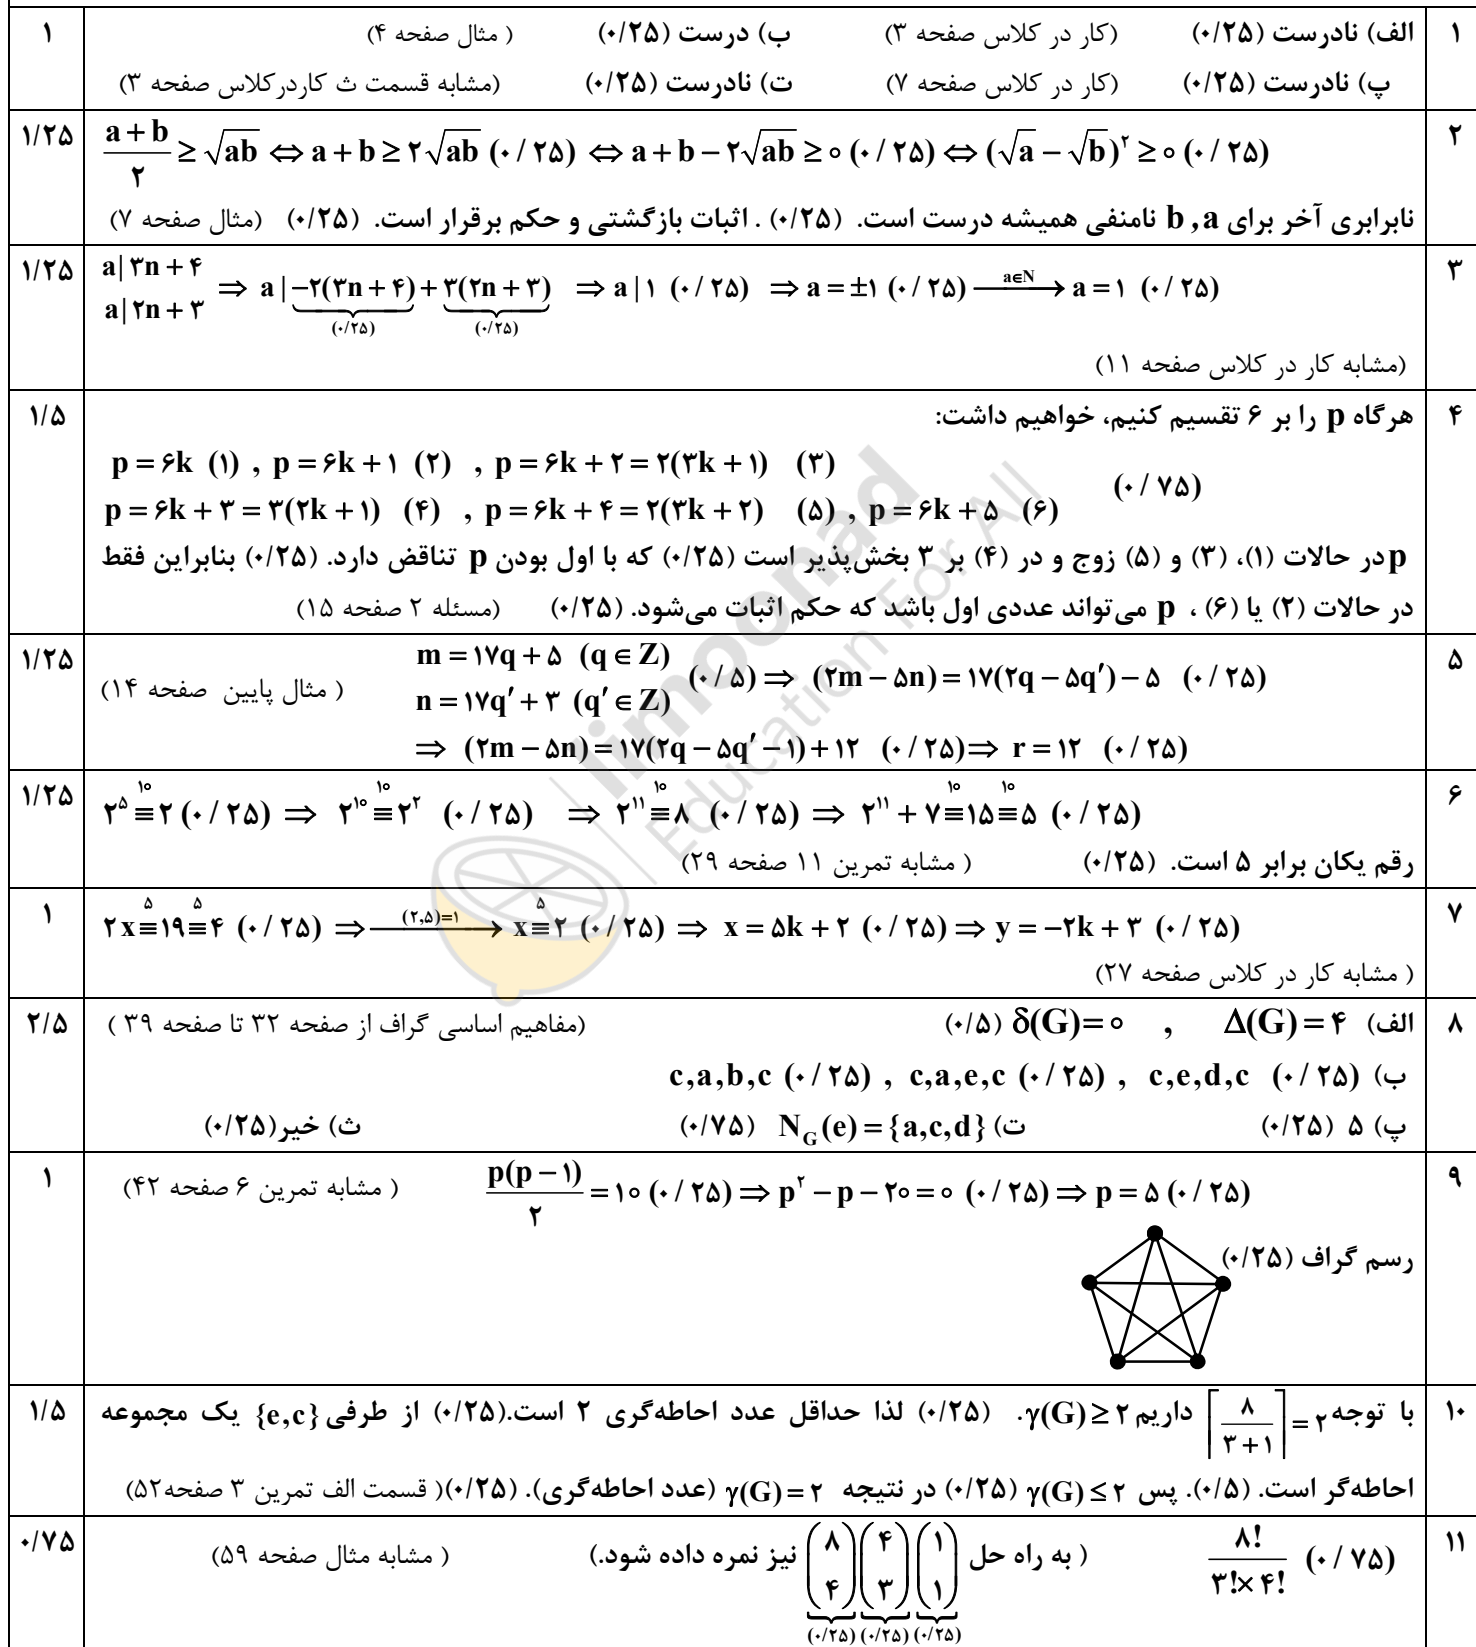 ۱ الف) نادرست (۰/۲۵) (کار در کلاس صفحه ۳) ب) درست (۰/۲۵) ( مثال صفحه ۴) ۱
پ) نادرست (۰/۲۵) (کار در کلاس صفحه ۷) ت) نادرست (۰/۲۵) (مشابه قسمت ث کاردرکلاس صفحه ۳)
۲ (a+b)/۲ ≥ √ab ⇔ a+b ≥ ۲√ab (۰/۲۵) ⇔ a+b−۲√ab ≥ ۰ (۰/۲۵) ⇔ (√a − √b)^۲ ≥ ۰ (۰/۲۵) ۱/۲۵
نابرابری آخر برای b , a نامنفی همیشه درست است. (۰/۲۵) . اثبات بازگشتی و حکم برقرار است. (۰/۲۵) (مثال صفحه ۷)
۳ a|۳n+۴ ۱/۲۵
a|۲n+۳ ⇒ a | −۲(۳n+۴) (۰/۲۵) + ۳(۲n+۳) (۰/۲۵) ⇒ a|۱ (۰/۲۵) ⇒ a=±۱ (۰/۲۵) —a∈N→ a=۱ (۰/۲۵)
(مشابه کار در کلاس صفحه ۱۱)
۴ هرگاه p را بر ۶ تقسیم کنیم، خواهیم داشت: ۱/۵
p=۶k (۱) , p=۶k+۱ (۲) , p=۶k+۲=۲(۳k+۱) (۳)
p=۶k+۳=۳(۲k+۱) (۴) , p=۶k+۴=۲(۳k+۲) (۵) , p=۶k+۵ (۶) (۰/۷۵)
p در حالات (۱)، (۳) و (۵) زوج و در (۴) بر ۳ بخش‌پذیر است (۰/۲۵) که با اول بودن p تناقض دارد. (۰/۲۵) بنابراین فقط
در حالات (۲) یا (۶) ، p می‌تواند عددی اول باشد که حکم اثبات می‌شود. (۰/۲۵) (مسئله ۲ صفحه ۱۵)
۵ m=۱۷q+۵ (q∈Z) ۱/۲۵
n=۱۷q′+۳ (q′∈Z) (۰/۵) ⇒ (۲m−۵n)=۱۷(۲q−۵q′)−۵ (۰/۲۵) ( مثال پایین صفحه ۱۴)
⇒ (۲m−۵n)=۱۷(۲q−۵q′−۱)+۱۲ (۰/۲۵) ⇒ r=۱۲ (۰/۲۵)
۶ ۲^۵ ≡^۱۰ ۲ (۰/۲۵) ⇒ ۲^۱۰ ≡^۱۰ ۲^۲ (۰/۲۵) ⇒ ۲^۱۱ ≡^۱۰ ۸ (۰/۲۵) ⇒ ۲^۱۱+۷ ≡^۱۰ ۱۵ ≡^۱۰ ۵ (۰/۲۵) ۱/۲۵
رقم یکان برابر ۵ است. (۰/۲۵) ( مشابه تمرین ۱۱ صفحه ۲۹)
۷ ۲x ≡^۵ ۱۹ ≡^۵ ۴ (۰/۲۵) ⇒ —(۲,۵)=۱→ x ≡^۵ ۲ (۰/۲۵) ⇒ x=۵k+۲ (۰/۲۵) ⇒ y=−۲k+۳ (۰/۲۵) ۱
( مشابه کار در کلاس صفحه ۲۷)
۸ الف) Δ(G)=۴ , δ(G)=۰ (۰/۵) (مفاهیم اساسی گراف از صفحه ۳۲ تا صفحه ۳۹ ) ۲/۵
ب) c,a,b,c (۰/۲۵) , c,a,e,c (۰/۲۵) , c,e,d,c (۰/۲۵)
پ) ۵ (۰/۲۵) ت) N_G(e)={a,c,d} (۰/۷۵) ث) خیر(۰/۲۵)
۹ p(p−۱)/۲=۱۰ (۰/۲۵) ⇒ p^۲−p−۲۰=۰ (۰/۲۵) ⇒ p=۵ (۰/۲۵) ( مشابه تمرین ۶ صفحه ۴۲) ۱
رسم گراف (۰/۲۵)
۱۰ با توجه ⌈۸/(۳+۱)⌉=۲ داریم γ(G)≥۲. (۰/۲۵) لذا حداقل عدد احاطه‌گری ۲ است.(۰/۲۵) از طرفی {e,c} یک مجموعه ۱/۵
احاطه‌گر است. (۰/۵). پس γ(G)≤۲ (۰/۲۵) در نتیجه γ(G)=۲ (عدد احاطه‌گری). (۰/۲۵)( قسمت الف تمرین ۳ صفحه۵۲)
۱۱ ۸!/(۳!×۴!) (۰/۷۵) ( به راه حل (۸ ۴)(۴ ۳)(۱ ۱) نیز نمره داده شود.) ( مشابه مثال صفحه ۵۹) ۰/۷۵
(۰/۲۵) (۰/۲۵) (۰/۲۵)
limoonad
Education For All